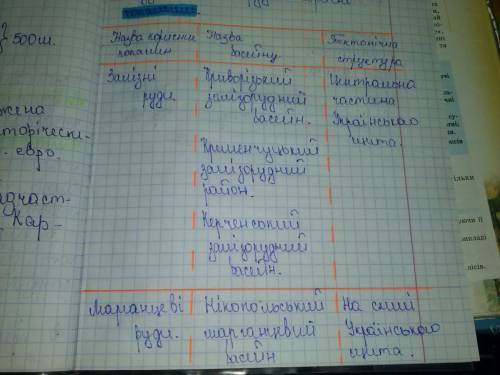 500ш.
Назва корисних
копалин
Назва
басейну
Тектонічна
структура
Залізні
руди.
Криворізький
залізорудний
басейн.
Центральна
частина
Українського
щита.
Кременчуцький
залізорудний
район.
Керченський
залізорудний
басейн.
Марганцеві
руди.
Нікопольський
марганцевий
басейн
На схилі
Українського
щита.
євро.
Кар-
лісів.